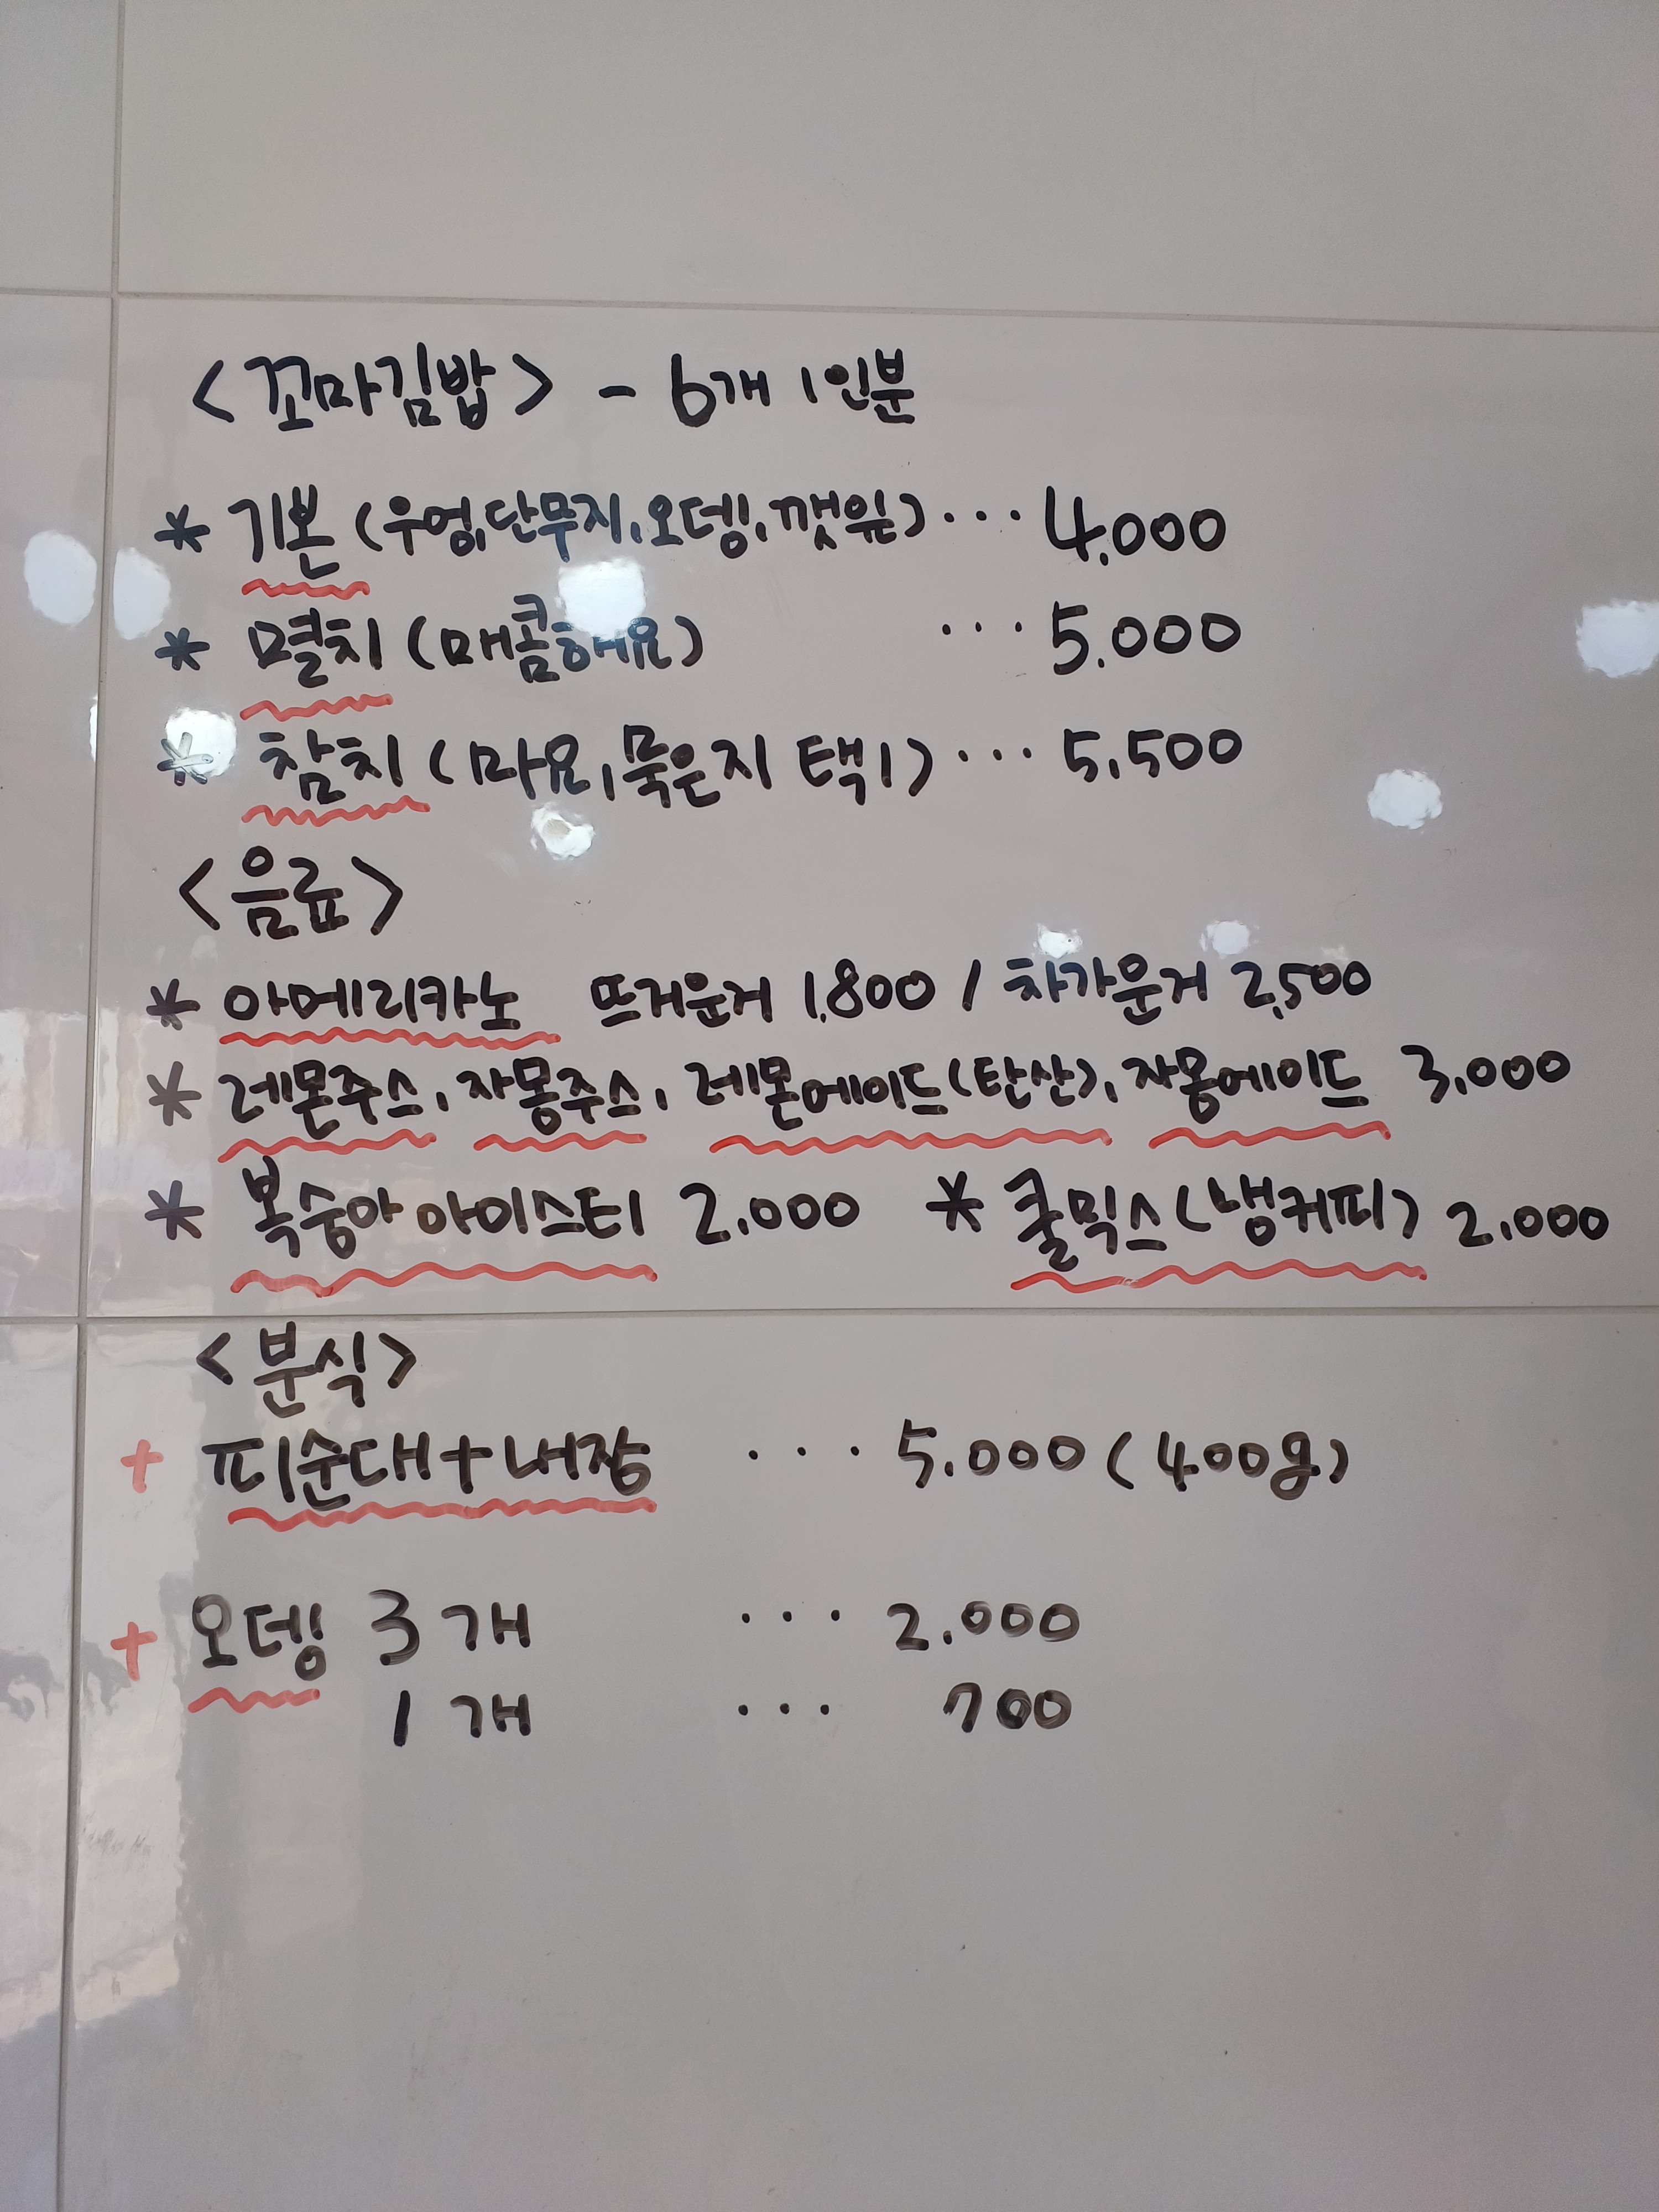 <꼬마김밥> - 6개 1인분
* 기본 (우엉, 단무지, 오뎅, 깻잎) ··· 4,000
* 멸치 (매콤해요) ··· 5.000
* 참치 (마요, 묵은지 택1) ··· 5,500
<음료>
* 아메리카노 뜨거운거 1,800 / 차가운거 2,500
* 레몬주스, 자몽주스, 레몬에이드(탄산), 자몽에이드 3,000
* 복숭아 아이스티 2.000 * 쿨믹스(냉커피) 2.000
<분식>
+ 피순대+내장 ··· 5.000 (400g)
+ 오뎅 3개 ··· 2.000
1개 ··· 700